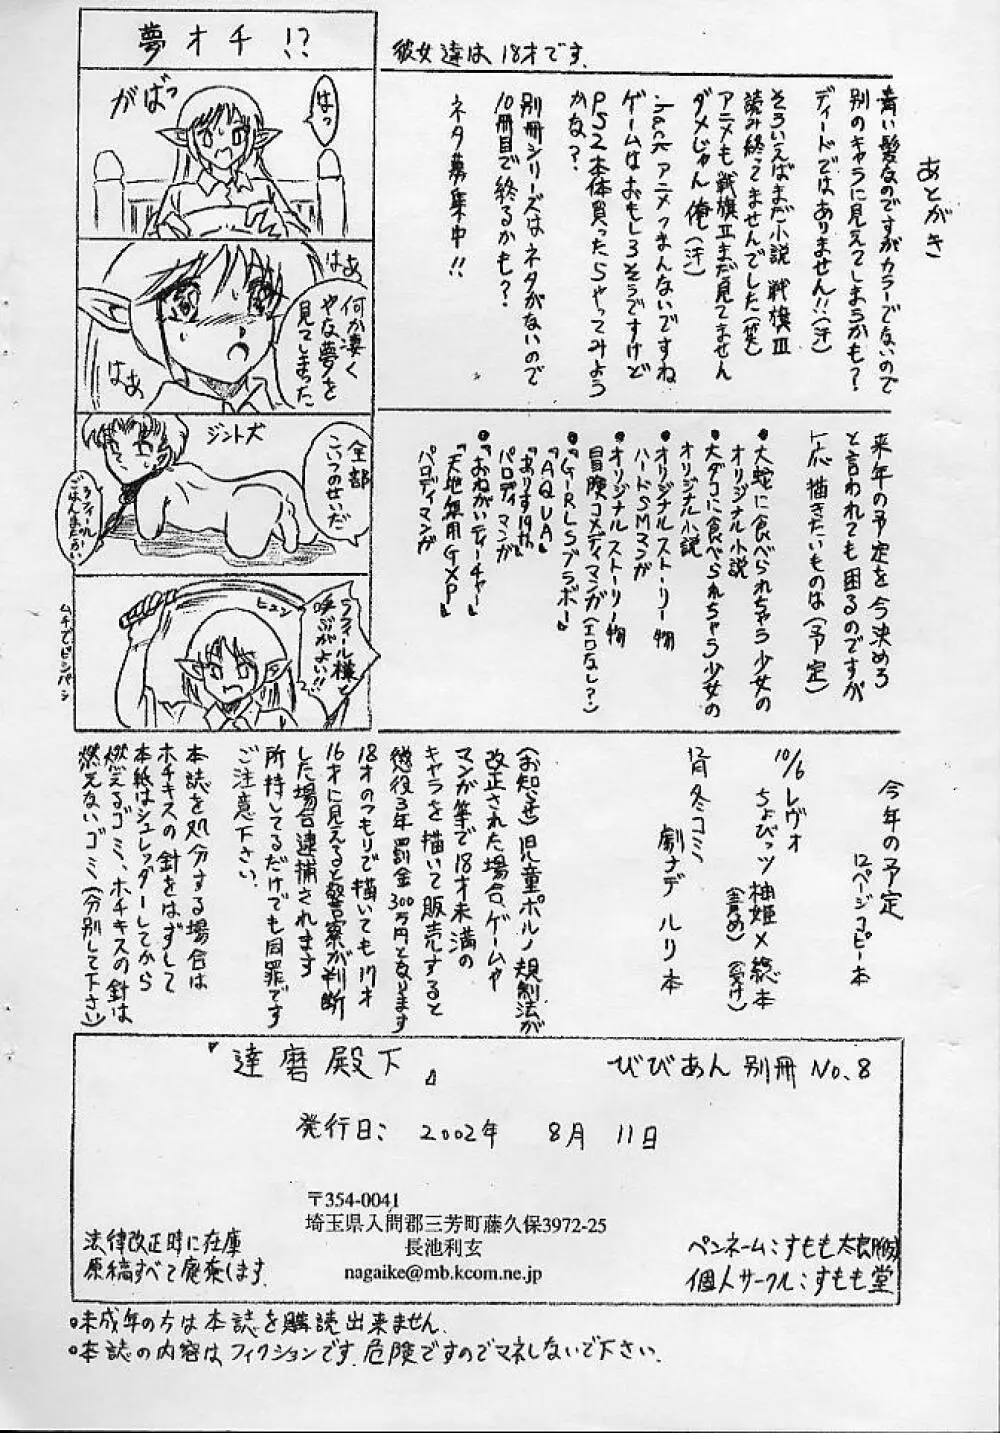 夢オチ!?
はっ
がばっ
はあ
何か凄く
やな夢を
見てしまった
はあ
ジント犬
全部
こいつのせいだ
ラフィール
ごはんまだかい
ラフィール様と
呼ぶがよい!!
ヒュン
ムチでビシバシ
彼女達は、18才です。
あとがき
青い髪なのですがカラーでないので
別のキャラに見えてしまうかも?
ディードではありません!!(汗)
そういえばまだ小説 戦旗III
読み終ってませんでした(笑)
アニメも戦旗IIまだ見てません
ダメじゃん俺(汗)
.hack アニメつまんないですね
ゲームはおもしろそうですけど
PS2本体買ったらやってみよう
かな?
別冊シリーズはネタがないので
10冊目で終るかも?
ネタ募集中!!
来年の予定を今決めろ
と言われても困るのですが
一応描きたいものは(予定)
•大蛇に食べられちゃう少女の
オリジナル小説
•大ダコに食べられちゃう少女の
オリジナル小説
•オリジナルストーリー物
ハードSMマンガ
•オリジナルストーリー物
冒険コメディマンガ(エロなし?)
•『GIRLSブラボー』
『AQUA』
『ありす19th』
パロディマンガ
•『おねがいティーチャー』
『天地無用GXP』
パロディマンガ
今年の予定
12ページコピー本
10/6 レヴォ
ちょびっツ 柚姫×総本
(責め)(受け)
12月 冬コミ
劇ナデ ルリ本
(お知らせ)児童ポルノ規制法が
改正された場合、ゲームや
マンガ等で18才未満の
キャラを描いて販売すると
懲役3年罰金300万円となります
18才のつもりで描いても17才
16才に見えると警察が判断
した場合逮捕されます
所持してるだけでも同罪です
ご注意下さい。
本誌を処分する場合は
ホチキスの針をはずして
本紙はシュレッダーしてから
燃えるゴミ、ホチキスの針は
燃えないゴミ(分別して下さい)
『達磨殿下』
びびあん 別冊 No.8
発行日: 2002年 8月 11日
〒354-0041
埼玉県入間郡三芳町藤久保3972-25
長池利玄
nagaike@mb.kcom.ne.jp
法律改正時に在庫
原稿すべて廃棄します
ペンネーム:すもも太郎(仮)
個人サークル:すもも堂
•未成年の方は本誌を購読出来ません。
•本誌の内容は、フィクションです。危険ですのでマネしないで下さい。